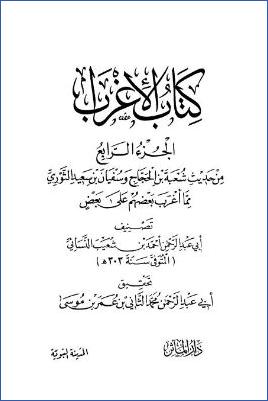 كتاب الإغراب
الجزء الرابع
من حديث شعبة بن الحجاج وسفيان بن سعيد الثوري
مما أغرب بعضهم على بعض
تصنيف
أبي عبد الرحمن أحمد بن شعيب النسائي
( المتوفى سنة ٣٠٣ هـ )
تحقيق
أبي عبد الرحمن محمد الثاني بن عمر بن موسى
دار المآثر
المدينة النبوية